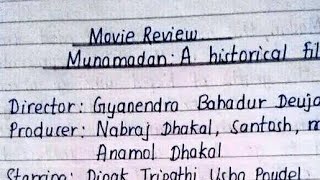 Movie Review
Munamadan: A historical fil
Director: Gyanendra Bahadur Deuja
Producer: Nabraj Dhakal, Santosh,
Anamol Dhakal
Starring: Dipak Tripathi Usha Poudel